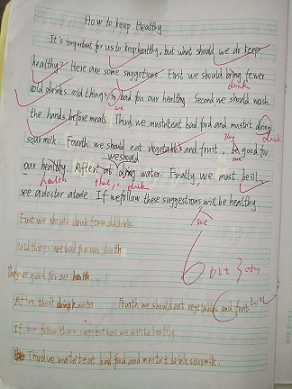 How to keep Healthy
It's important for us to keep healthy, but what should we do keep
healthy? Here are some suggestions. First we should bring fewer
drink
cold drinks. cold things is bad for our healthy. Second we should wash
are
the hands before meals. Third we mustn't eat bad food and mustn't dring
drink
sour milk. Fourth we should eat vegetables and fruit. be good for
they
are
our healthy. After we should dring water. Finally we must be ill
health
that, drink
see a doctor atone. If we follow these suggestions will be healthy
we
First we should drink fewer cold drinks
Cold things are bad for our health
They are good for our health
After that drink water Fourth we should eat vegetables and fruit
If we follow these suggestions we will be healthy
Third we mustn't eat bad food and mustn't drink sour milk.